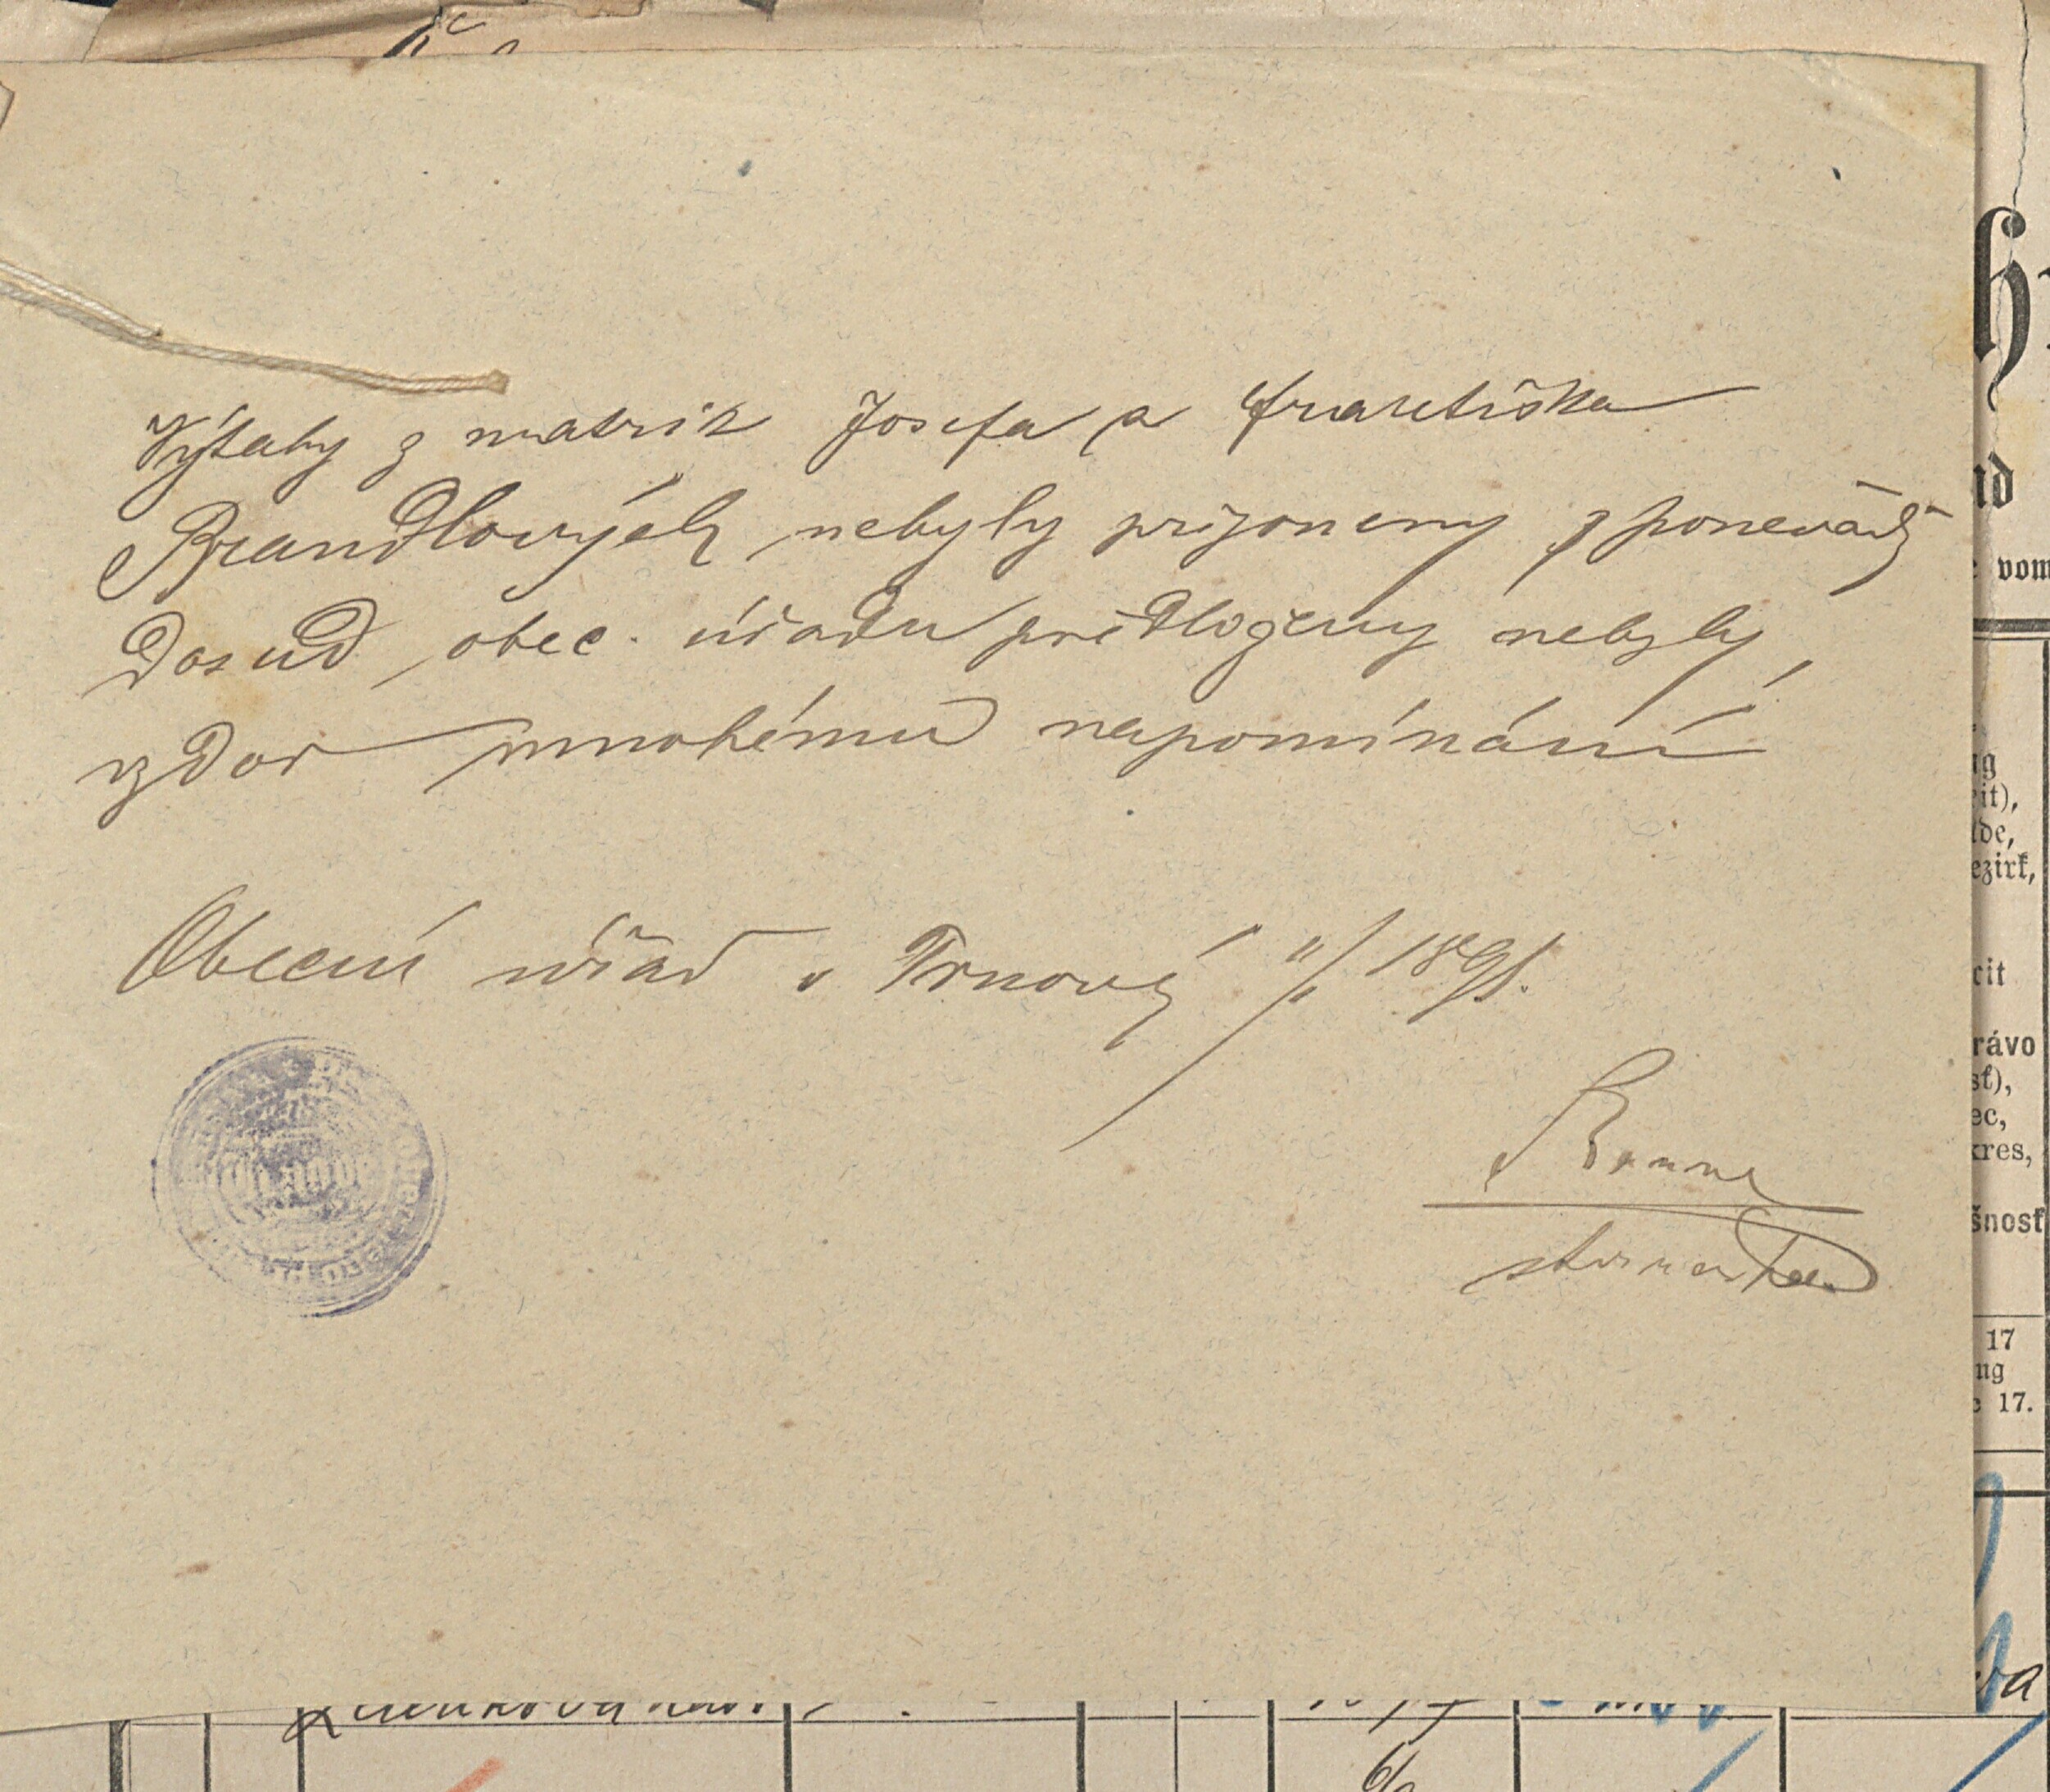 Výtahy z matrik Josefa a Františka
Brandlových nebyly připojeny, poněvadž
dosud obec. úřadu předloženy nebyly,
vzdor mnohému napomínání
Obecní úřad v Trnový 11/1 1891.
starosta
vom
eit),
ezirk,
rávo
ec,
kres,
17
ng
17.